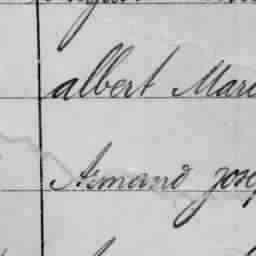 albert Mari
Armand Josep